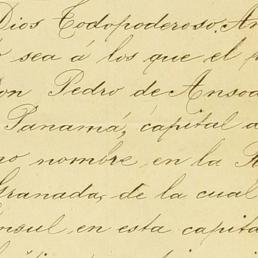 Dios Todopoderoso. Am
o sea á los que el p
on Pedro de Ansoa
Panamá, capital a
no nombre, en la R
Granada, de la cual
nsul en esta capita